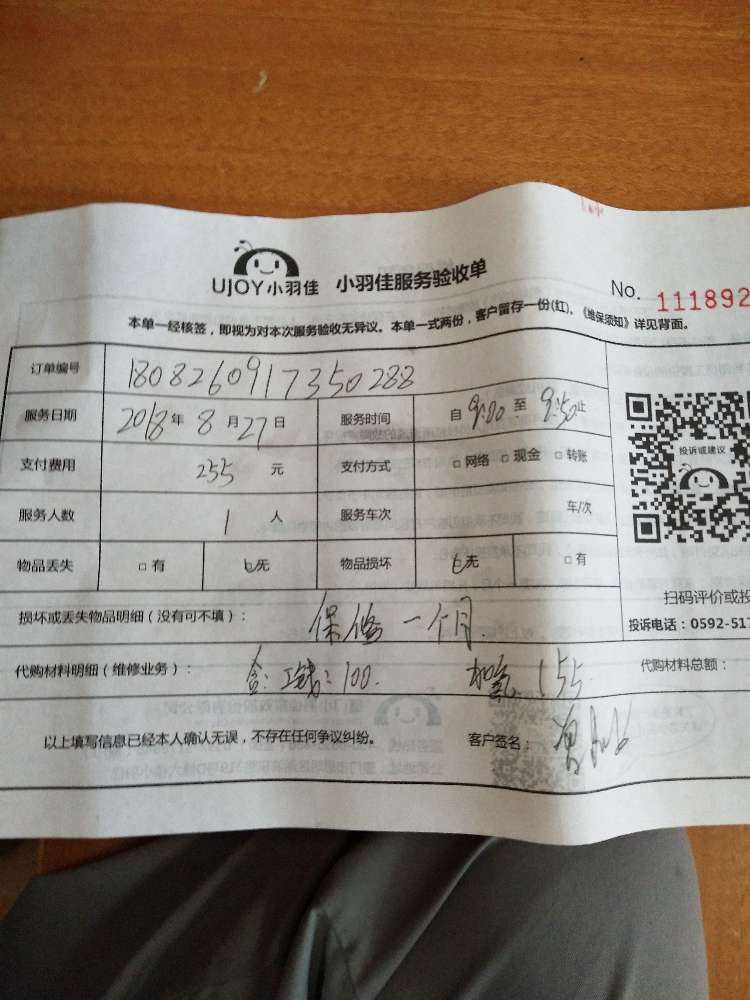 UJOY小羽佳 小羽佳服务验收单
No. 111892
本单一经核签，即视为对本次服务验收无异议。本单一式两份，客户留存一份(红)。《维保须知》详见背面。
订单编号 1808260917350288
服务日期 2018年8月27日 服务时间 自9:00至9:50止
投诉或建议
支付费用 255元 支付方式 □网络 □现金 □转账
服务人数 1人 服务车次 车/次
物品丢失 □有 □无 物品损坏 □无 □有
扫码评价或投
损坏或丢失物品明细（没有可不填）： 保修一个月.
投诉电话：0592-517
代购材料明细（维修业务）： 工钱：100. 加氟155 代购材料总额：
以上填写信息已经本人确认无误，不存在任何争议纠纷。 客户签名：